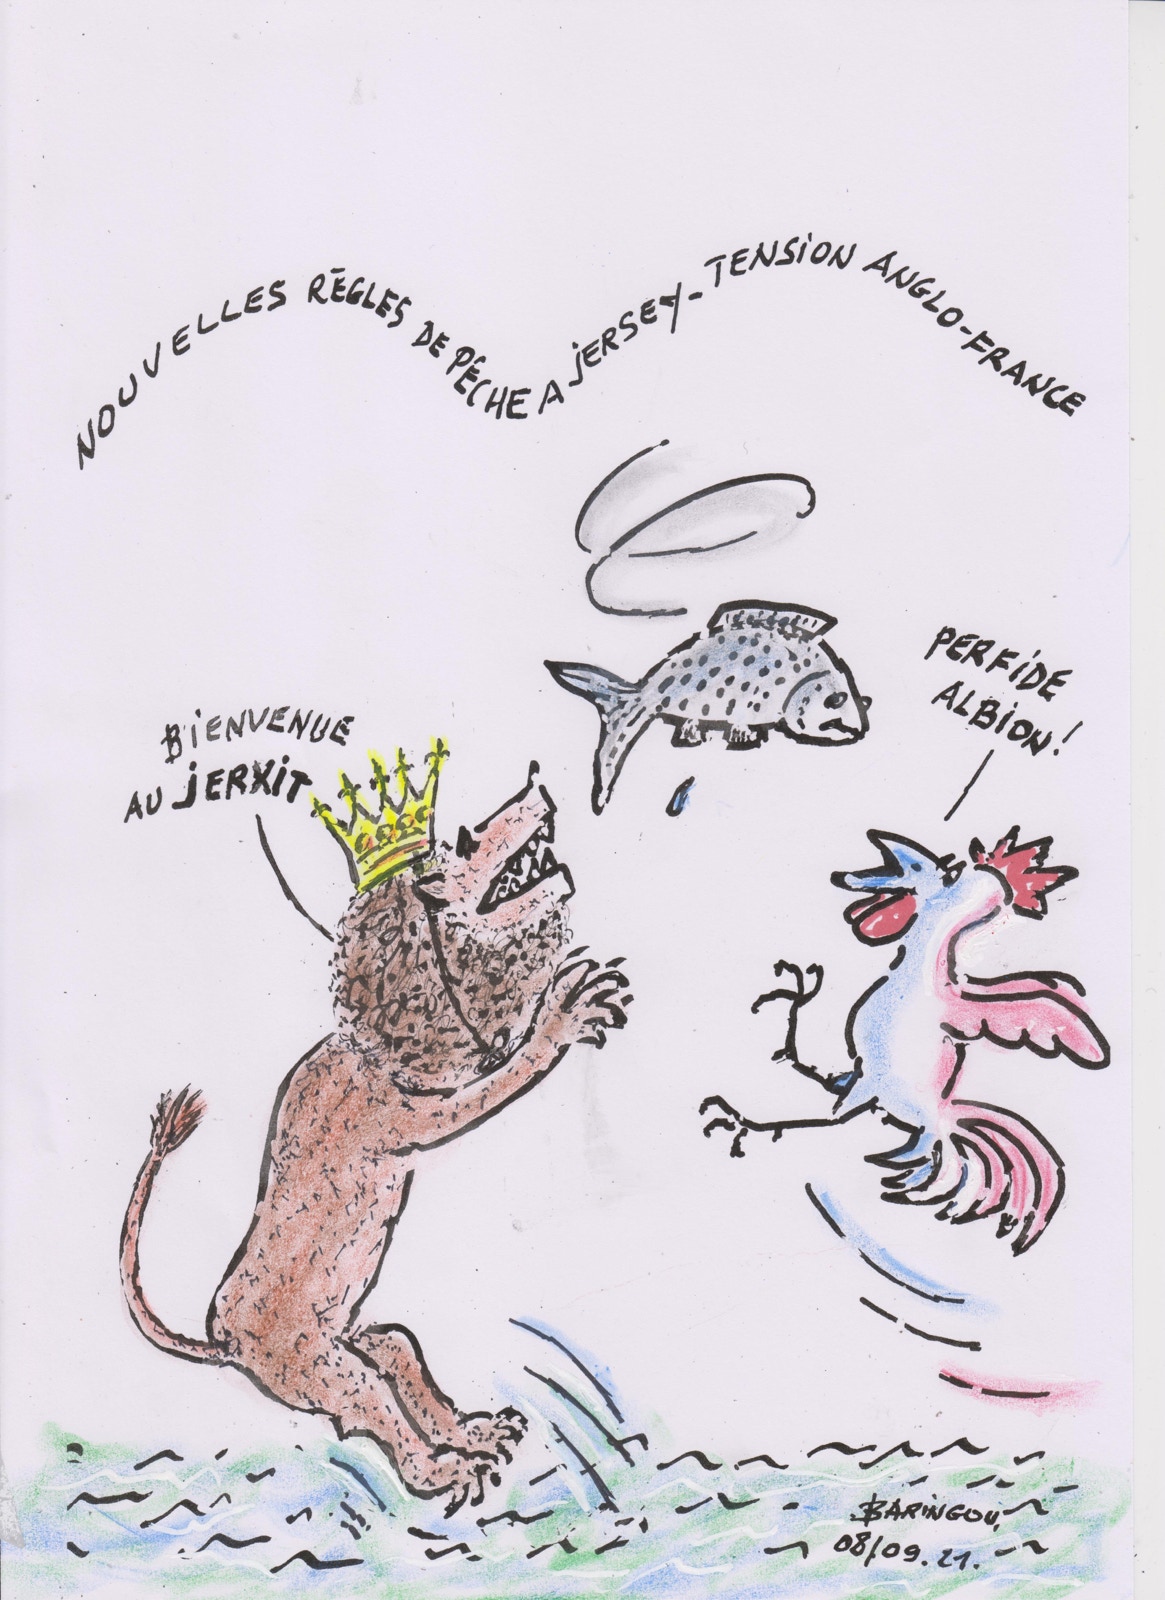 NOUVELLES RÈGLES DE PÊCHE A JERSEY-TENSION ANGLO-FRANCE
PERFIDE
ALBION!
BIENVENUE
AU JERXIT
BARINGOU
08/09.21.